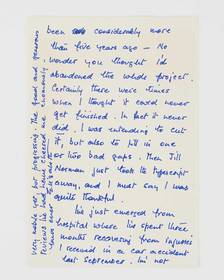 been considerably more
than five years ago — No
wonder you thought I'd
abandoned the whole project.
Certainly there were times
when I thought it could never
get finished. In fact it never
did. I was intending to cut
it, but also to fill in one
or two bad gaps. Then Jill
Norman just took the typescript
away, and I must say I was
quite thankful.
I've just emerged from
hospital where I've spent three
months recovering from injuries
I received in a car accident
last September. I'm not
very mobile yet, but progressing. The good and generous
reviews I've had have cheered me enormously.